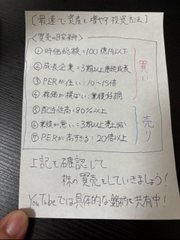 【最速で資産を増やす投資方法】
<売買の目安条件>
① 時価総額→100億円以下
② 成長企業→3期以上連続成長
③ PERが低い→10~15倍
④ 株価が横ばい→業績好調
買い
⑤ 配当性向→80%以上
⑥ 業績が悪い→3期以上減少
⑦ PERが高すぎる→20倍以上
売
上記を確認して
株の買売をしていきましょう!
YouTubeでは具体的な銘柄を共有中!